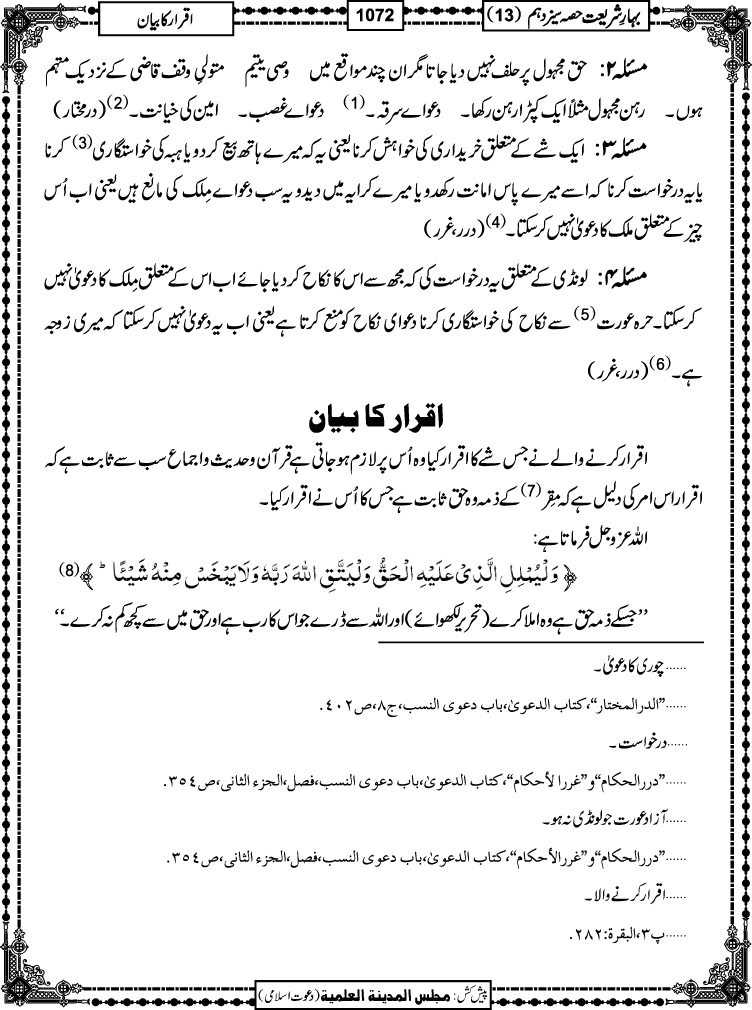 بہارِ شریعت حصہ سیزدہم (13)
1072
اقرار کا بیان
مسئلہ ۲: حق مجہول پر حلف نہیں دیا جاتا مگر ان چند مواقع میں وصی یتیم متولیِ وقف قاضی کے نزدیک متہم
ہوں۔ رہن مجہول مثلاً ایک کپڑا رہن رکھا۔ دعواے سرقہ۔(1) دعواے غصب۔ امین کی خیانت۔(2) (درمختار)
مسئلہ ۳: ایک شے کے متعلق خریداری کی خواہش کرنا یعنی یہ کہ میرے ہاتھ بیع کردو یا ہبہ کی خواستگاری(3) کرنا
یا یہ درخواست کرنا کہ اسے میرے پاس امانت رکھدو یا میرے کرایہ میں دیدو یہ سب دعواے مِلک کی مانع ہیں یعنی اب اُس
چیز کے متعلق ملک کا دعویٰ نہیں کرسکتا۔(4) (درر، غرر)
مسئلہ ۴: لونڈی کے متعلق یہ درخواست کی کہ مجھ سے اس کا نکاح کردیا جائے اب اس کے متعلق مِلک کا دعویٰ نہیں
کرسکتا۔ حرہ عورت(5) سے نکاح کی خواستگاری کرنا دعوای نکاح کو منع کرتا ہے یعنی اب یہ دعویٰ نہیں کرسکتا کہ میری زوجہ
ہے۔(6) (درر، غرر)
اقرار کا بیان
اقرار کرنے والے نے جس شے کا اقرار کیا وہ اُس پر لازم ہوجاتی ہے قرآن وحدیث واجماع سب سے ثابت ہے کہ
اقرار اس امر کی دلیل ہے کہ مقِر(7) کے ذمہ وہ حق ثابت ہے جس کا اُس نے اقرار کیا۔
اللہ عزوجل فرماتا ہے:
﴿ وَلْيُمْلِلِ الَّذِیْ عَلَيْهِ الْحَقُّ وَلْيَتَّقِ اللّٰهَ رَبَّهٗ وَلَا يَبْخَسْ مِنْهُ شَيْئًا ؕ ﴾(8)
’’جسکے ذمہ حق ہے وہ املا کرے (تحریر لکھوائے) اور اللہ سے ڈرے جو اس کا رب ہے اور حق میں سے کچھ کم نہ کرے۔‘‘
......چوری کا دعویٰ۔
......”الدرالمختار“،کتاب الدعویٰ،باب دعوی النسب،ج۸،ص۴۰۲.
......درخواست۔
......”دررالحکام“و”غررا لأحکام“،کتاب الدعویٰ،باب دعوی النسب،فصل،الجزء الثانی،ص۳۵۴.
......آزاد عورت جو لونڈی نہ ہو۔
......”دررالحکام“و”غررالأحکام“،کتاب الدعویٰ،باب دعوی النسب،فصل،الجزء الثانی،ص۳۵۴.
......اقرار کرنے والا۔
......پ۳،البقرۃ:۲۸۲.
پیش کش: مجلس المدینۃ العلمیۃ (دعوت اسلامی)